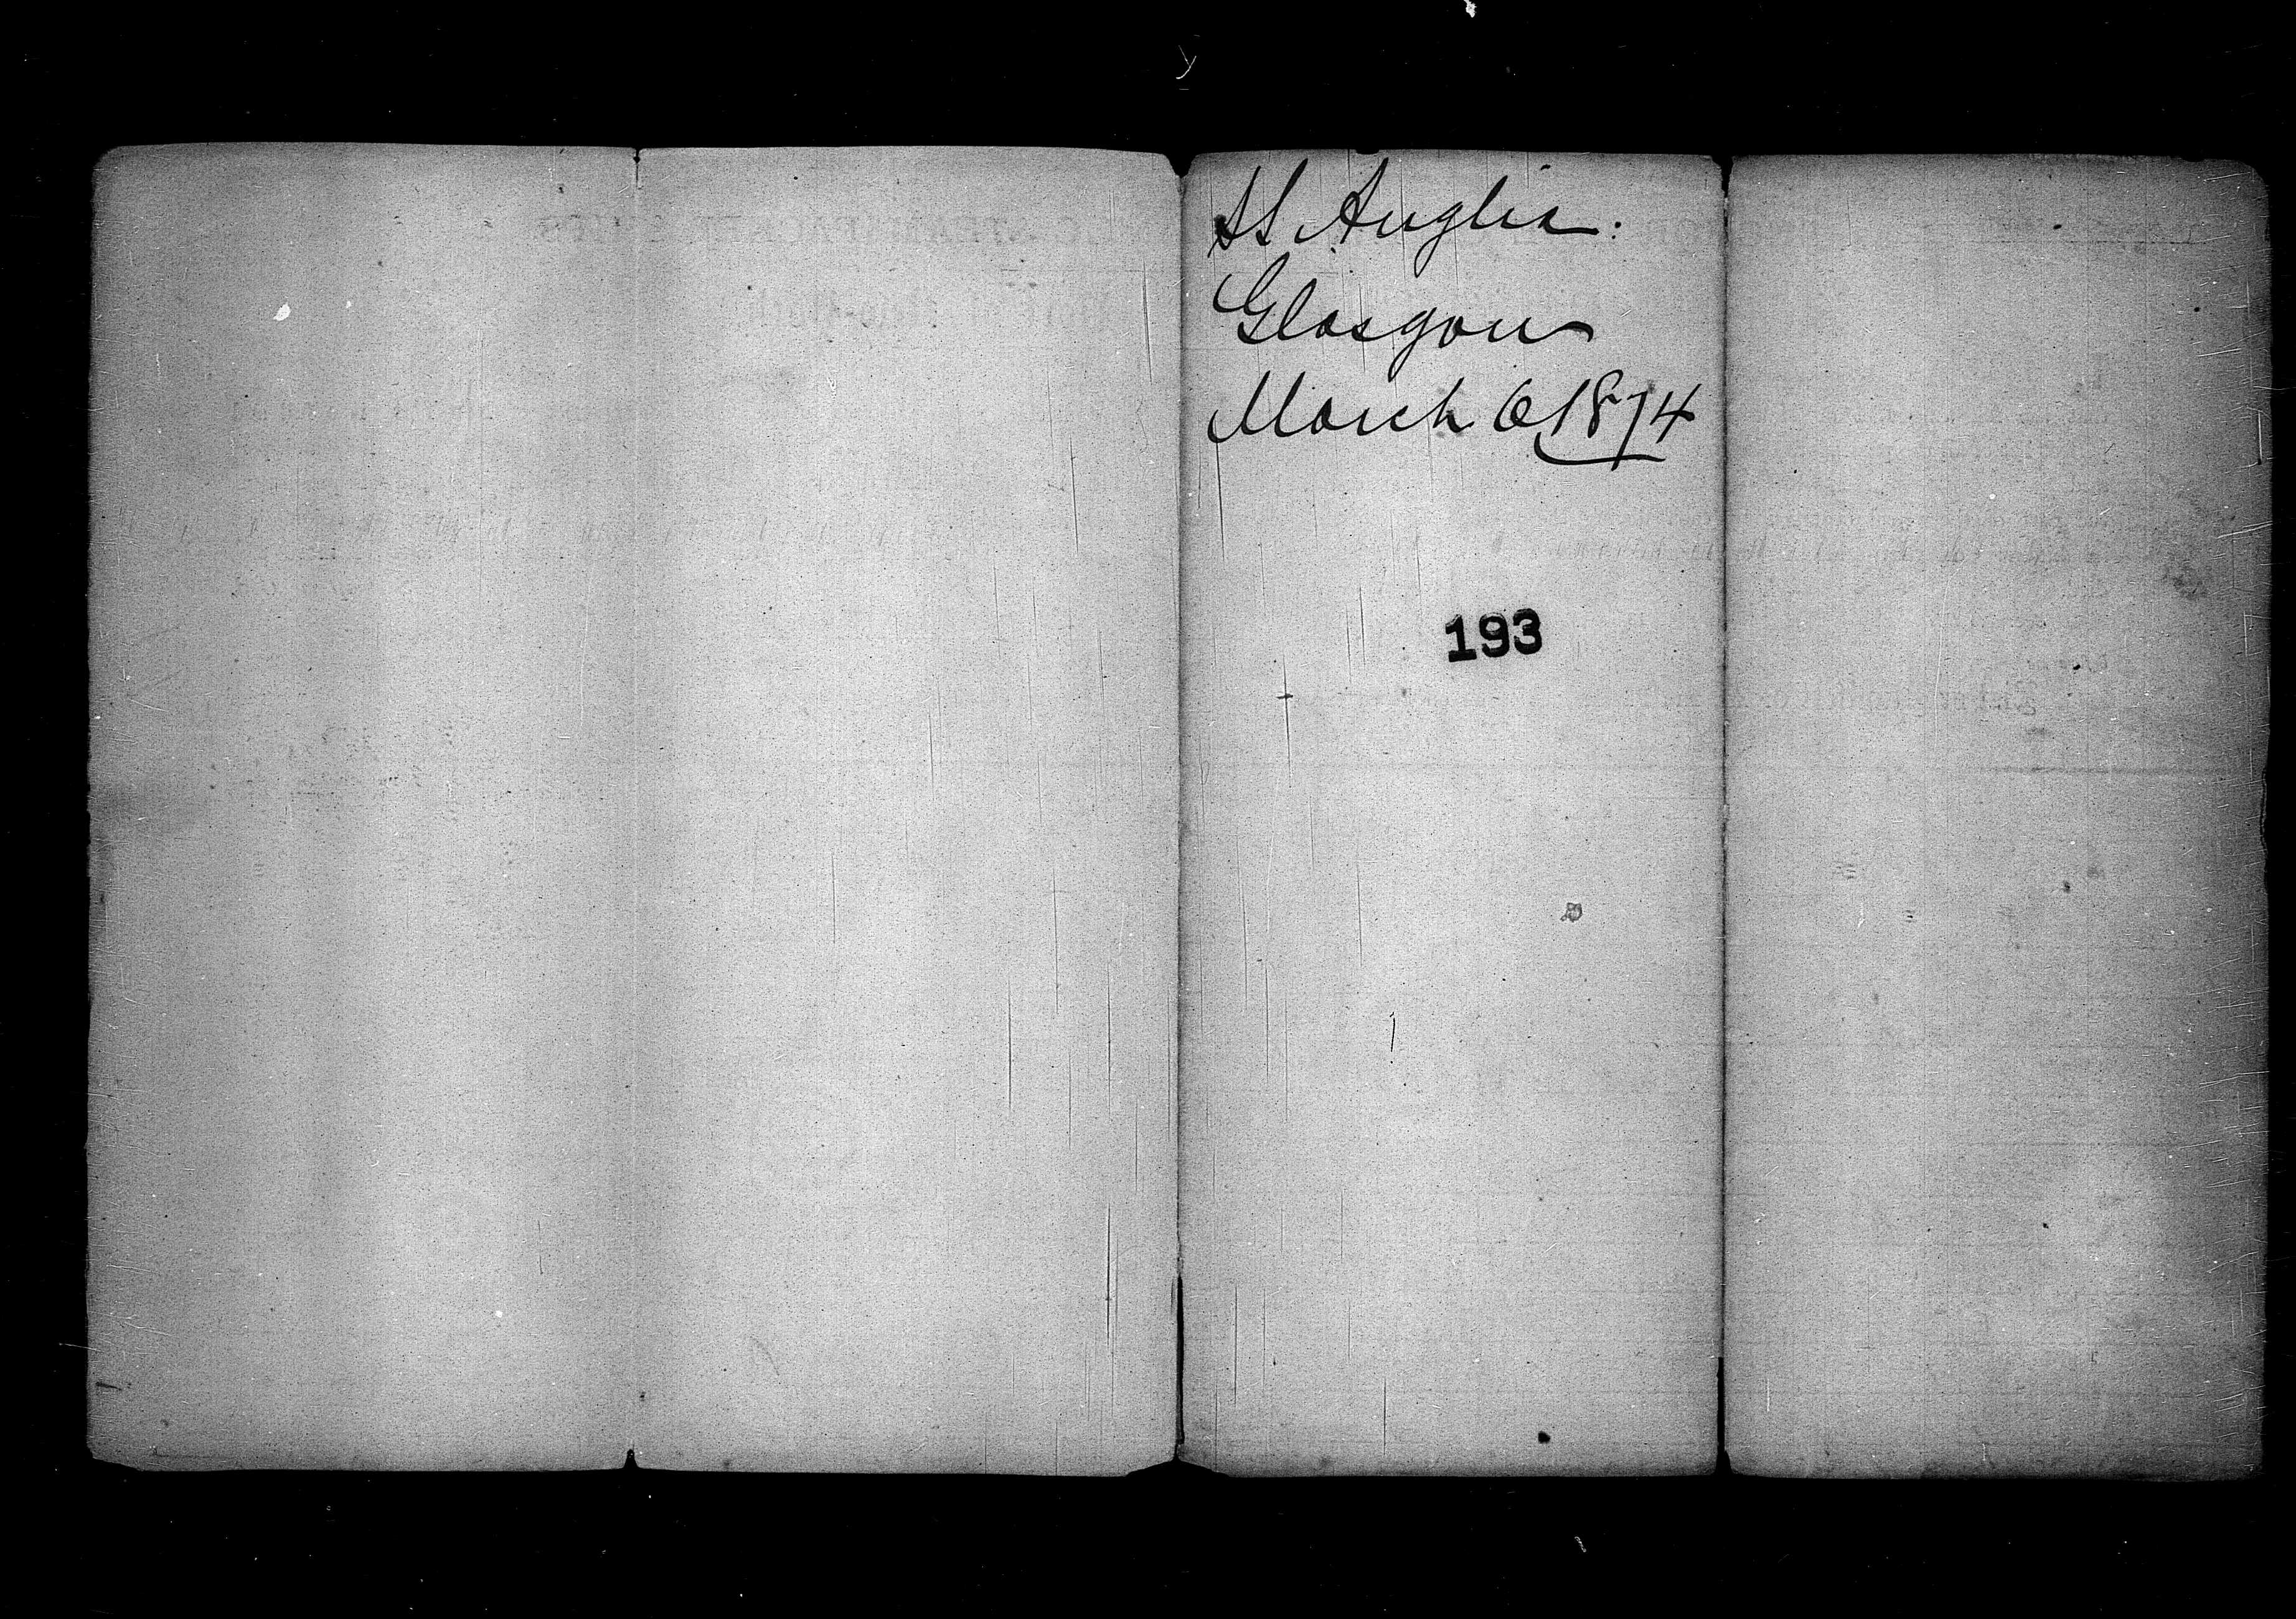 SS Anglia.
Glasgow
March 6 1874
193